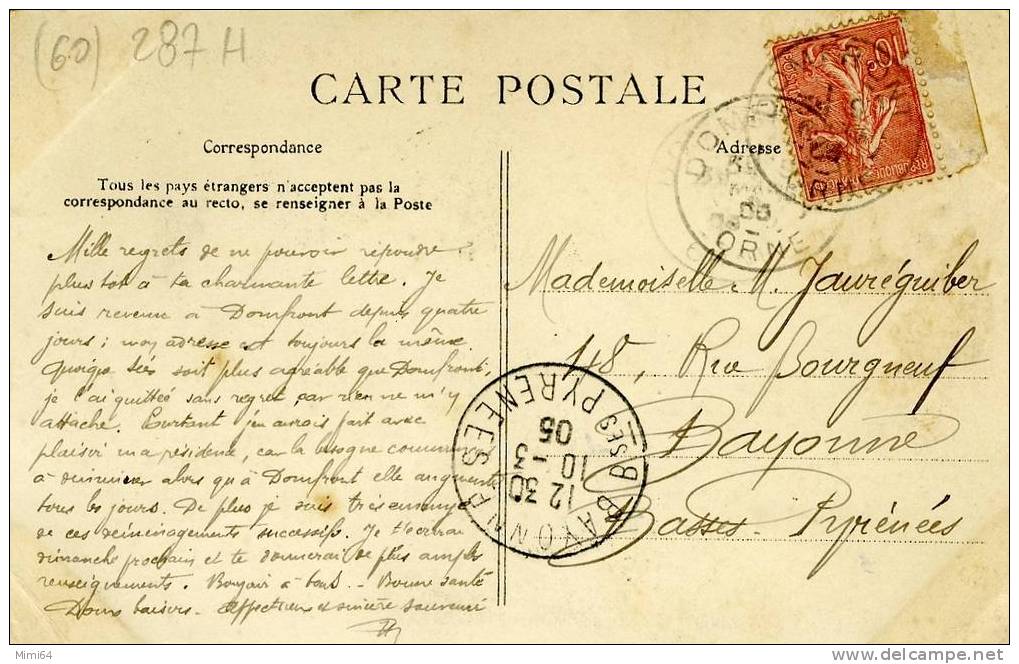 (60) 287 H
CARTE POSTALE
Correspondance
Adresse
Tous les pays étrangers n'acceptent pas la
correspondance au recto, se renseigner à la Poste
Mille regrets de ne pouvoir répondre
plus tôt à ta charmante lettre. Je
suis revenu à Domfront depuis quatre
jours ; mon adresse est toujours la même.
Quoique Sées soit plus agréable que Domfront,
je l'ai quittée sans regret car rien ne m'y
attache. Pourtant j'y aurois fait avec
plaisir ma résidence, car la besogne commence
à diminuer alors qu'à Domfront elle augmente
tous les jours. De plus je suis très ennuyé
de ces déménagements successifs. Je t'écrirai
dimanche prochain et te donnerai de plus amples
renseignements. Bonjour à tous. - Bonne santé
Doux baisers. Affectueux et sincère souvenir
Mademoiselle M. Jauréguiber
48, Rue Bourgneuf
Bayonne
Basses Pyrénées
BAYONNE
BSES PYRENEES
12 30
10 - 3
05
DOMFRONT
ORNE
10c
Mimi64
delcampe.net